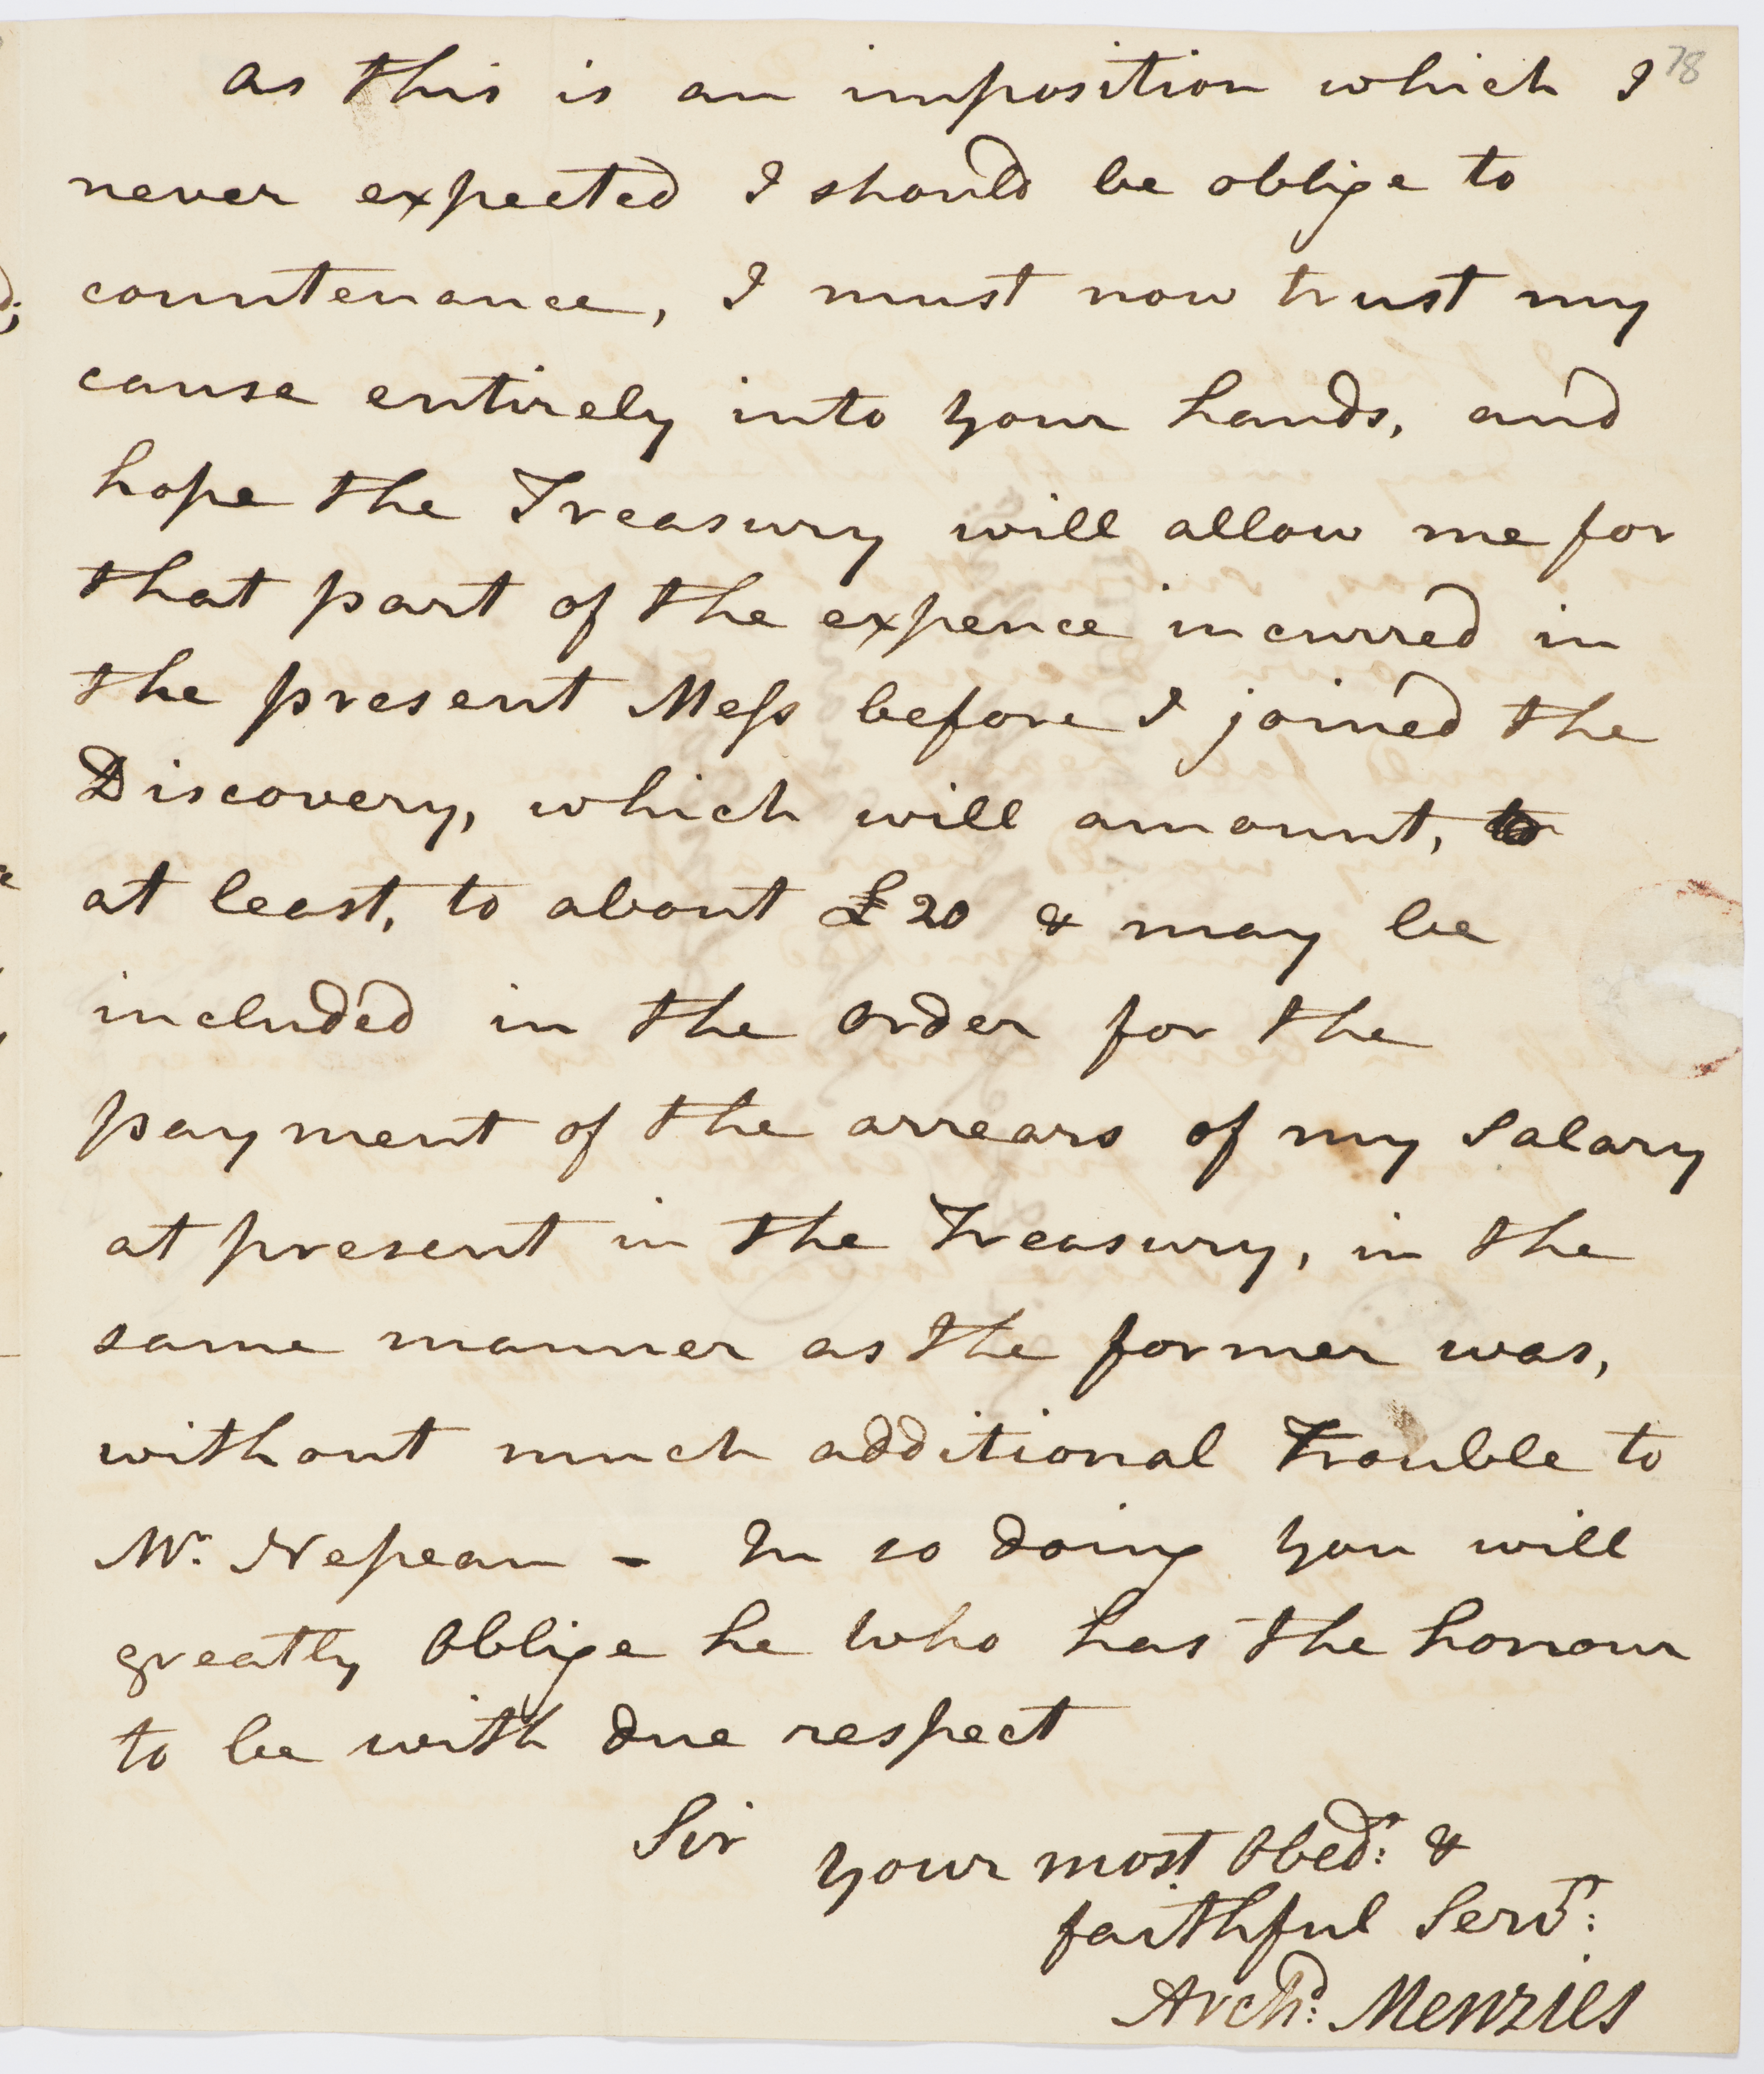 78
as this is an imposition which I
never expected I should be oblige to
countenance, I must now trust my
cause entirely into your hands, and
hope the Treasury will allow me for
that part of the expence incurred in
the present Mess before I joined the
Discovery, which will amount, to
at least, to about £20 & may be
included in the order for the
payment of the arrears of my Salary
at present in the Treasury, in the
same manner as the former was,
without much additional Trouble to
Mr. Nepean - In so doing you will
greatly Oblige he who has the honour
to be with due respect
Sir
your most Obedt: &
faithful Servt:
Archd: Menzies